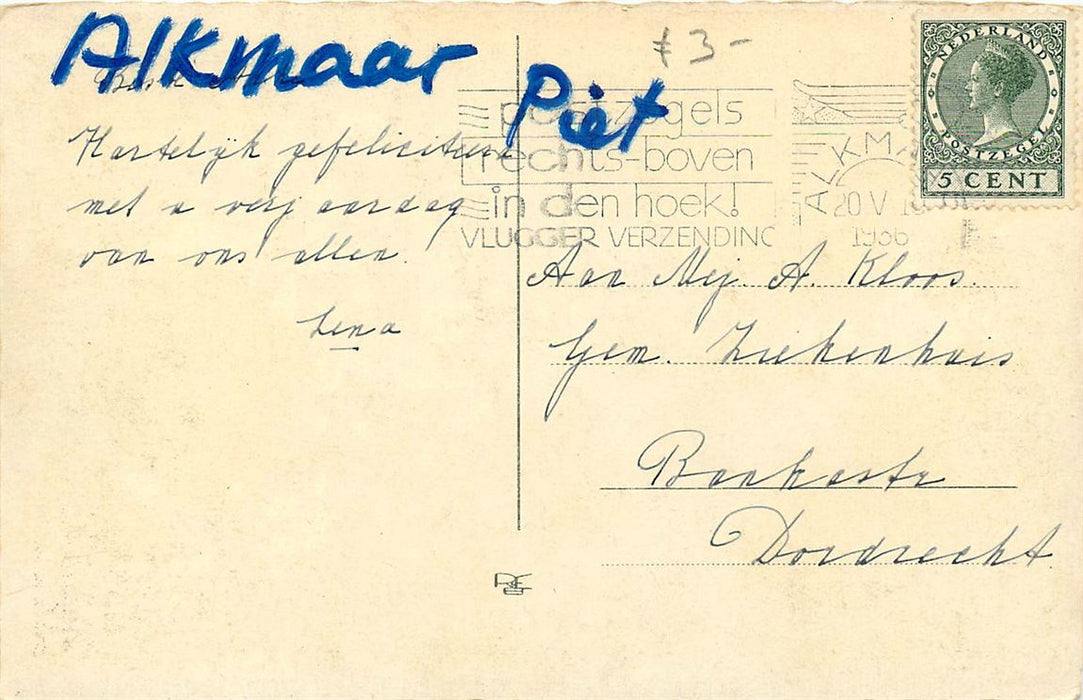 Alkmaar
Piet
3 -
Hartelijk gefeliciteerd
met u verjaardag
van ons allen.
Lena
postzegels
rechts-boven
in den hoek!
VLUGGER VERZENDING
ALKM
20 V
1936
NEDERLAND
POSTZEGEL
5 CENT
Aan Mej. A. Kloos.
Gem. Ziekenhuis
Bankastr
Dordrecht